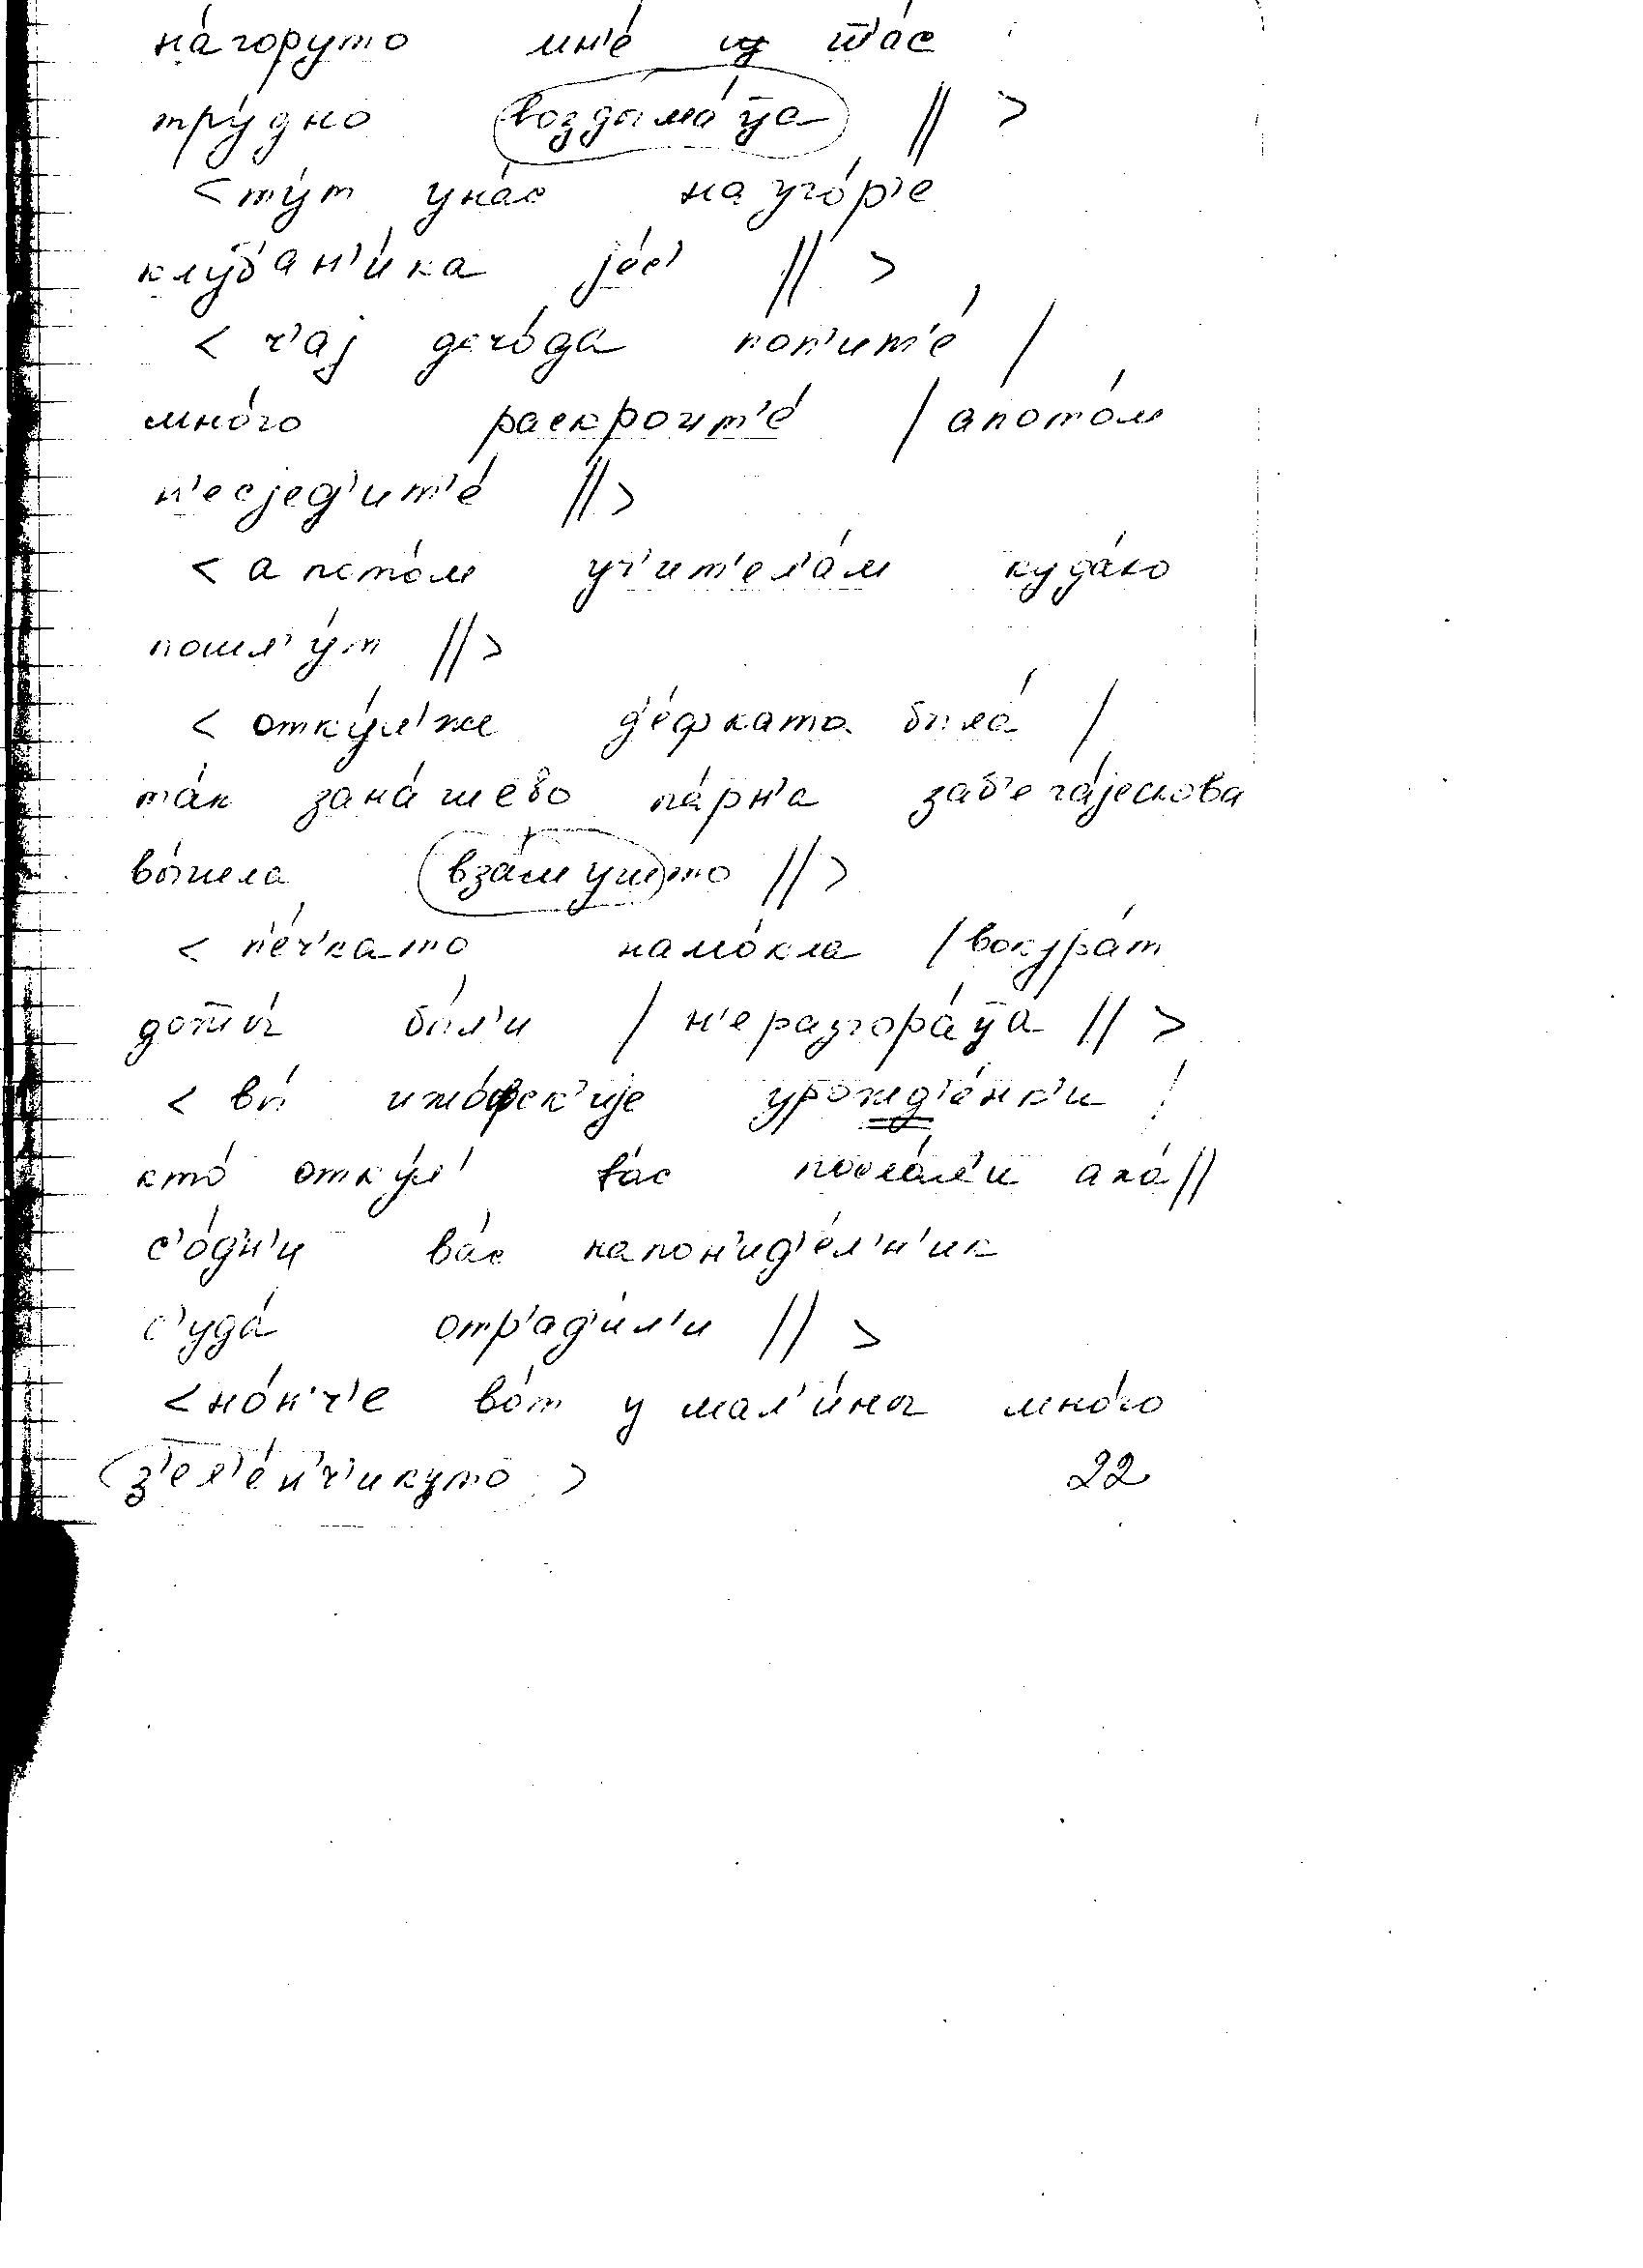 на́горуто мн'е́ щ т̄'а́с
тру́дно воздыма́ц̄а // >
< ту́т уна́с на уго́р'е
клуб'ан'и́ка jе́с' // >
< ч'аj до́чода поп'ит'е́ /
мно́го раскроит'е́ / апото́м
н'есjед'ит'е́ // >
< а пото́м уч'ит'ел'а́м куда́ко
пошл'у́т // >
< отку́л'же д'е́фката была́ /
та́к зана́шево па́рн'а заб'ега́јескова
вы́шла вза́мушто // >
< п'е́ч'като намо́кла / вокура́т
дот̄ы́ бы́л'и / н'еразгора́ц̄а // >
< вы́ ижо́фск'иjе урожд'е́нк'и /
кто́ отку́л' ва́с посла́л'и ака́ //
с'о́дн'и ва́с напон'ид'е́л'н'ик
с'уда́ отр'ад'и́л'и // >
< но́н'ч'е во́т у мал'и́ны мно́го
з'ел'е́н'ч'икуто > 22